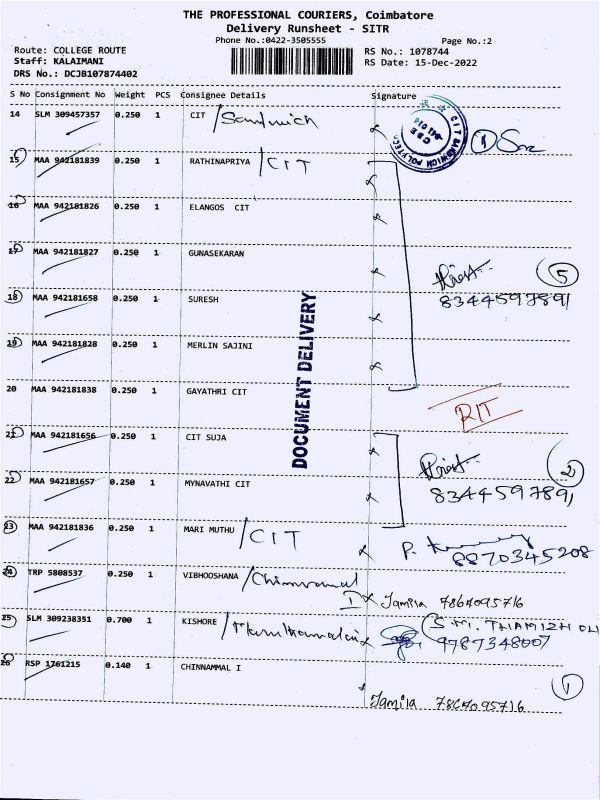 THE PROFESSIONAL COURIERS, Coimbatore
Delivery Runsheet - SITR
Phone No.:0422-3505555 Page No.:2
Route: COLLEGE ROUTE RS No.: 1078744
Staff: KALAIMANI RS Date: 15-Dec-2022
DRS No.: DCJB107874402
S No Consignment No Weight PCS Consignee Details Signature
14 SLM 309457357 0.250 1 CIT / Sandwich
CIT SANDWICH POLYTEC
CBE
641 014
1
15 MAA 942181839 0.250 1 RATHINAPRIYA / CIT
16 MAA 942181826 0.250 1 ELANGOS CIT
17 MAA 942181827 0.250 1 GUNASEKARAN
5
18 MAA 942181658 0.250 1 SURESH 8344597891
19 MAA 942181828 0.250 1 MERLIN SAJINI
DOCUMENT DELIVERY
20 MAA 942181838 0.250 1 GAYATHRI CIT
RIT
21 MAA 942181656 0.250 1 CIT SUJA
2
22 MAA 942181657 0.250 1 MYNAVATHI CIT 8344597891
23 MAA 942181836 0.250 1 MARI MUTHU / CIT P.
8870345208
24 TRP 5808537 0.250 1 VIBHOOSHANA / Chinnamal
I Jamila 7867095716
25 SLM 309238351 0.700 1 KISHORE / (S.M. THAMIZH OLI
9787348007
26 RSP 1761215 0.140 1 CHINNAMMAL I
1
Jamila 7867095716